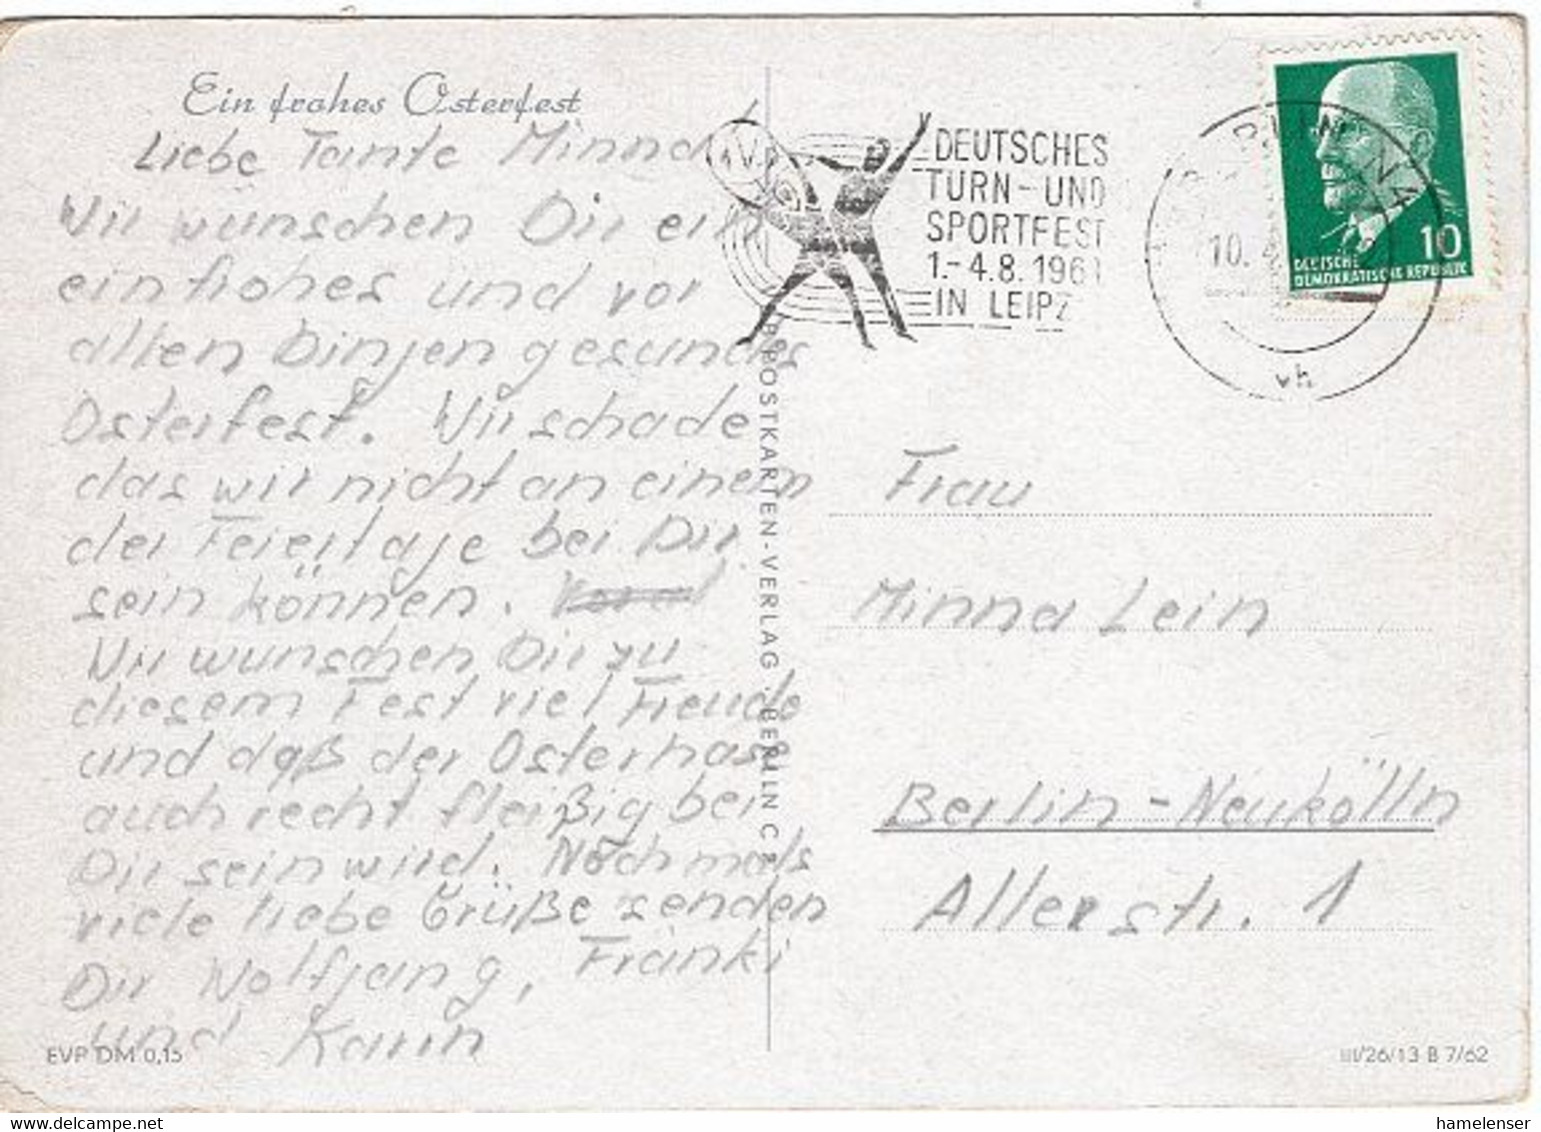 Ein frohes Osterfest
Liebe Tante Minna!
Wir wünschen Dir ein
ein frohes und vor
allen Dingen gesundes
Osterfest. Wir schade
das wir nicht an einem
der Feiertage bei Dir
sein können.
Wir wünschen Dir zu
diesem Fest viel Freude
und daß der Osterhas
auch recht fleißig bei
Dir sein wird. Nochmals
viele liebe Grüße senden
Dir Wolfgang, Franki
und Karin
EVP DM 0,15
POSTKARTEN-VERLAG · BERLIN C 2
IV.
DEUTSCHES
TURN- UND
SPORTFEST
1.-4.8.196
IN LEIPZ
10.
vh
10
DEUTSCHE
DEMOKRATISCHE REPUBLIK
Frau
Minna Lein
Berlin-Neukölln
Allerstr. 1
III/26/13 B 7/62
www.delcampe.net
hamelenser